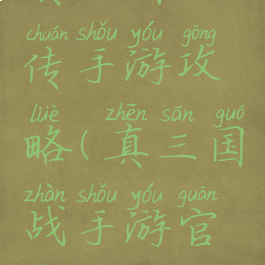 chuán shǒu yóu gōng
传手游攻
lüè zhēn sān guó
略(真三国
zhàn shǒu yóu guān
战手游官